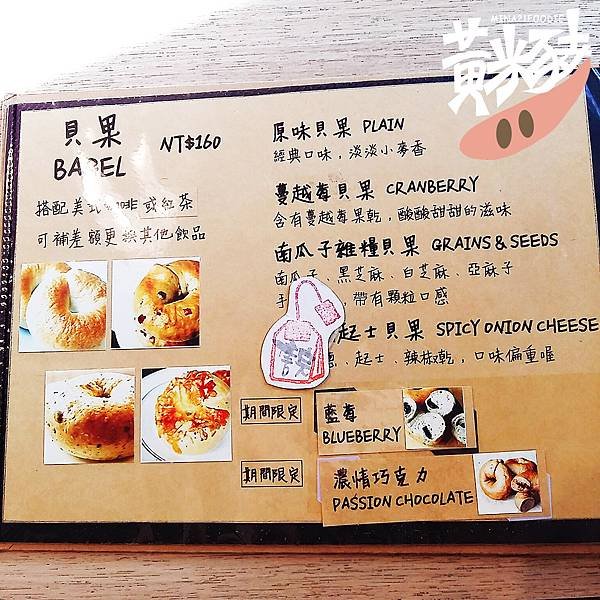 MINA21FOODIE
黃米豬
貝果 NT$160
BAGEL
搭配美式咖啡或紅茶
可補差額更換其他飲品
原味貝果 PLAIN
經典口味，淡淡小麥香
蔓越莓貝果 CRANBERRY
含有蔓越莓果乾，酸酸甜甜的滋味
南瓜子雜糧貝果 GRAINS & SEEDS
南瓜子、黑芝麻、白芝麻、亞麻子
，帶有顆粒口感
起士貝果 SPICY ONION CHEESE
、起士、辣椒乾，口味偏重喔
期間限定
藍莓
BLUEBERRY
期間限定
濃情巧克力
PASSION CHOCOLATE